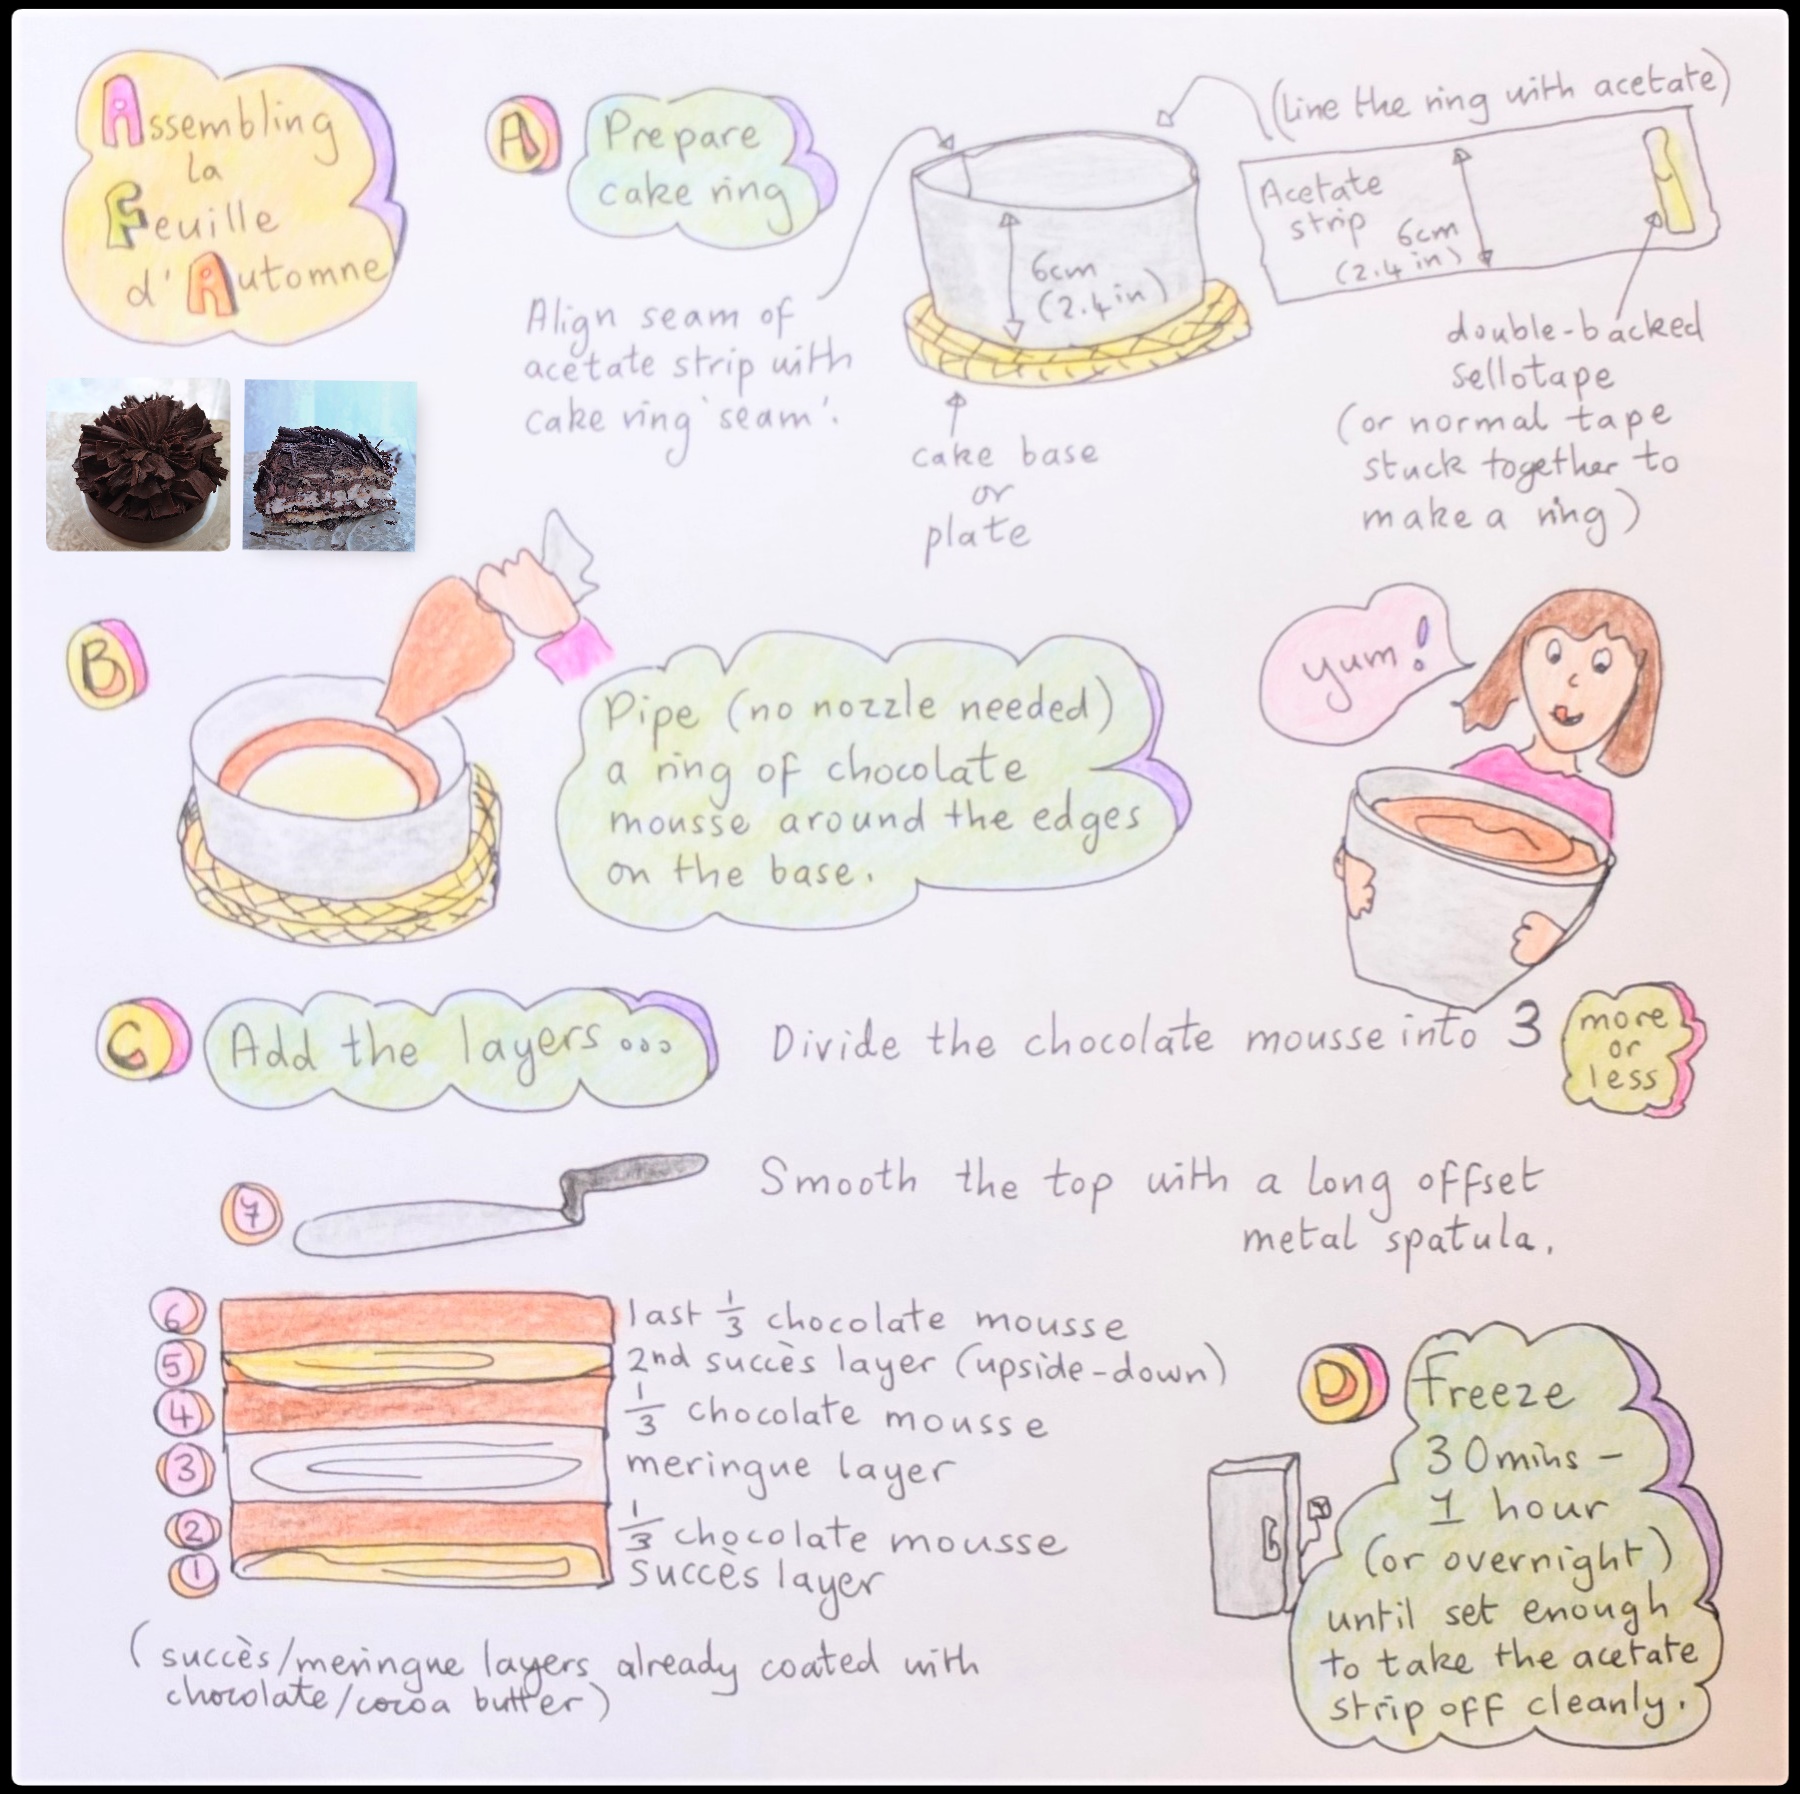 Assembling
la
Feuille
d'Automne
A
Prepare
cake ring
(line the ring with acetate)
Acetate
strip
6cm
(2.4in)
6cm
(2.4in)
Align seam of
acetate strip with
cake ring 'seam'.
cake base
or
plate
double-backed
sellotape
(or normal tape
stuck together to
make a ring)
B
Pipe (no nozzle needed)
a ring of chocolate
mousse around the edges
on the base.
yum!
C
Add the layers...
Divide the chocolate mousse into 3
more
or
less
7
Smooth the top with a long offset
metal spatula.
6 last 1/3 chocolate mousse
5 2nd succès layer (upside-down)
4 1/3 chocolate mousse
3 meringue layer
2 1/3 chocolate mousse
1 succès layer
(succès/meringue layers already coated with
chocolate/cocoa butter)
D
Freeze
30mins -
1 hour
(or overnight)
until set enough
to take the acetate
strip off cleanly.